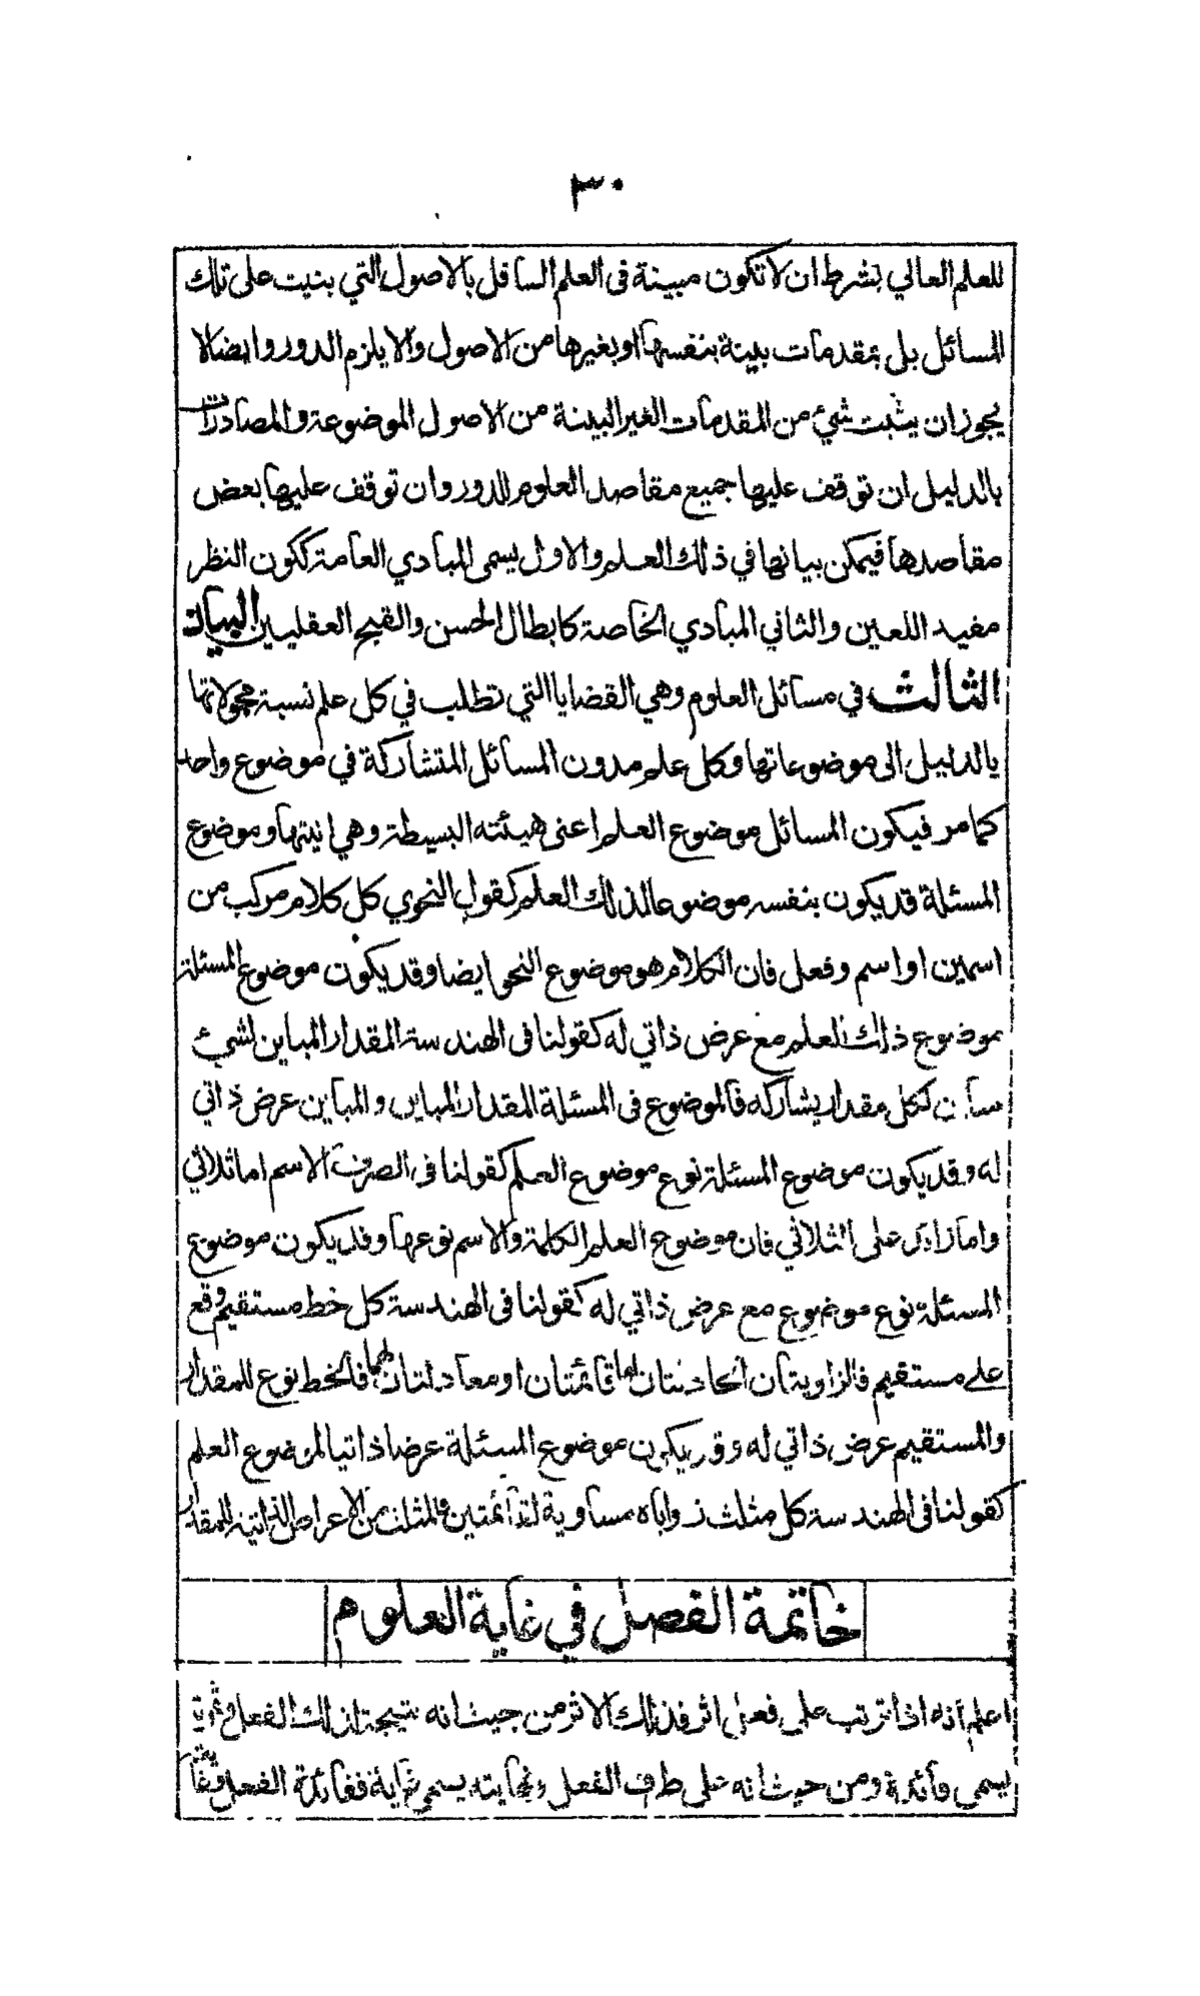 ٣٠
للعلم العالي بشرط ان لا تكون مبينة فى العلم السافل بالاصول التي بنيت على تلك
المسائل بل بمقدمات بينة بنفسها او بغيرها من الاصول والا يلزم الدور وايضا لا
يجوز ان يثبت شيئ من المقدمات الغير البينة من الاصول الموضوعة والمصادرات
بالدليل ان توقف عليها جميع مقاصد العلوم للدور وان توقف عليها بعض
مقاصدها فيمكن بيانها في ذلك العلم والاول يسمى المبادي العامة ككون النظر
مفيد اللعين والثاني المبادي الخاصة كابطال الحسن والقبح العقليين البيان
الثالث في مسائل العلوم وهي القضايا التي تطلب في كل علم نسبة محمولاتها
بالدليل الى موضوعاتها وكل علم مدون المسائل المتشاركة في موضوع واحد
كما مر فيكون المسائل موضوع العلم اعنى هيئته البسيطة وهي انيتها وموضوع
المسئلة قد يكون بنفسه موضوعا لذلك العلم كقول النحوي كل كلام مركب من
اسمين او اسم وفعل فان الكلام هو موضوع النحو ايضا وقد يكون موضوع المسئلة
موضوع ذلك العلم مع عرض ذاتي له كقولنا فى الهندسة المقدار المباين لشيئ
مباين لكل مقدار يشاركه فالموضوع فى المسئلة المقدار المباين والمباين عرض ذاتي
له وقد يكون موضوع المسئلة نوع موضوع العلم كقولنا فى الصرف الاسم اما ثلاثي
واما زايد على الثلاثي فان موضوع العلم الكلمة والاسم نوعها وقد يكون موضوع
المسئلة نوع موضوع مع عرض ذاتي له كقولنا فى الهندسة كل خط مستقيم وقع
على مستقيم فالزاويتان الحادثتان اما قائمتان او معادلتان لهما فالخط نوع للمقدار
والمستقيم عرض ذاتي له وقد يكون موضوع المسئلة عرضا ذاتيا لموضوع العلم
كقولنا فى الهندسة كل مثلث زواياه مساوية لقائمتين فالمثلث من الاعراض الذاتية للمقدار
خاتمة الفصل في غاية العلوم
اعلم انه اذا ترتب على فعل اثر فذلك الاثر من حيث انه نتيجة لذلك الفعل وثمرته
يسمى فائدة ومن حيث انه على طرف الفعل ونهايته يسمى غاية ففائدة الفعل وغايته